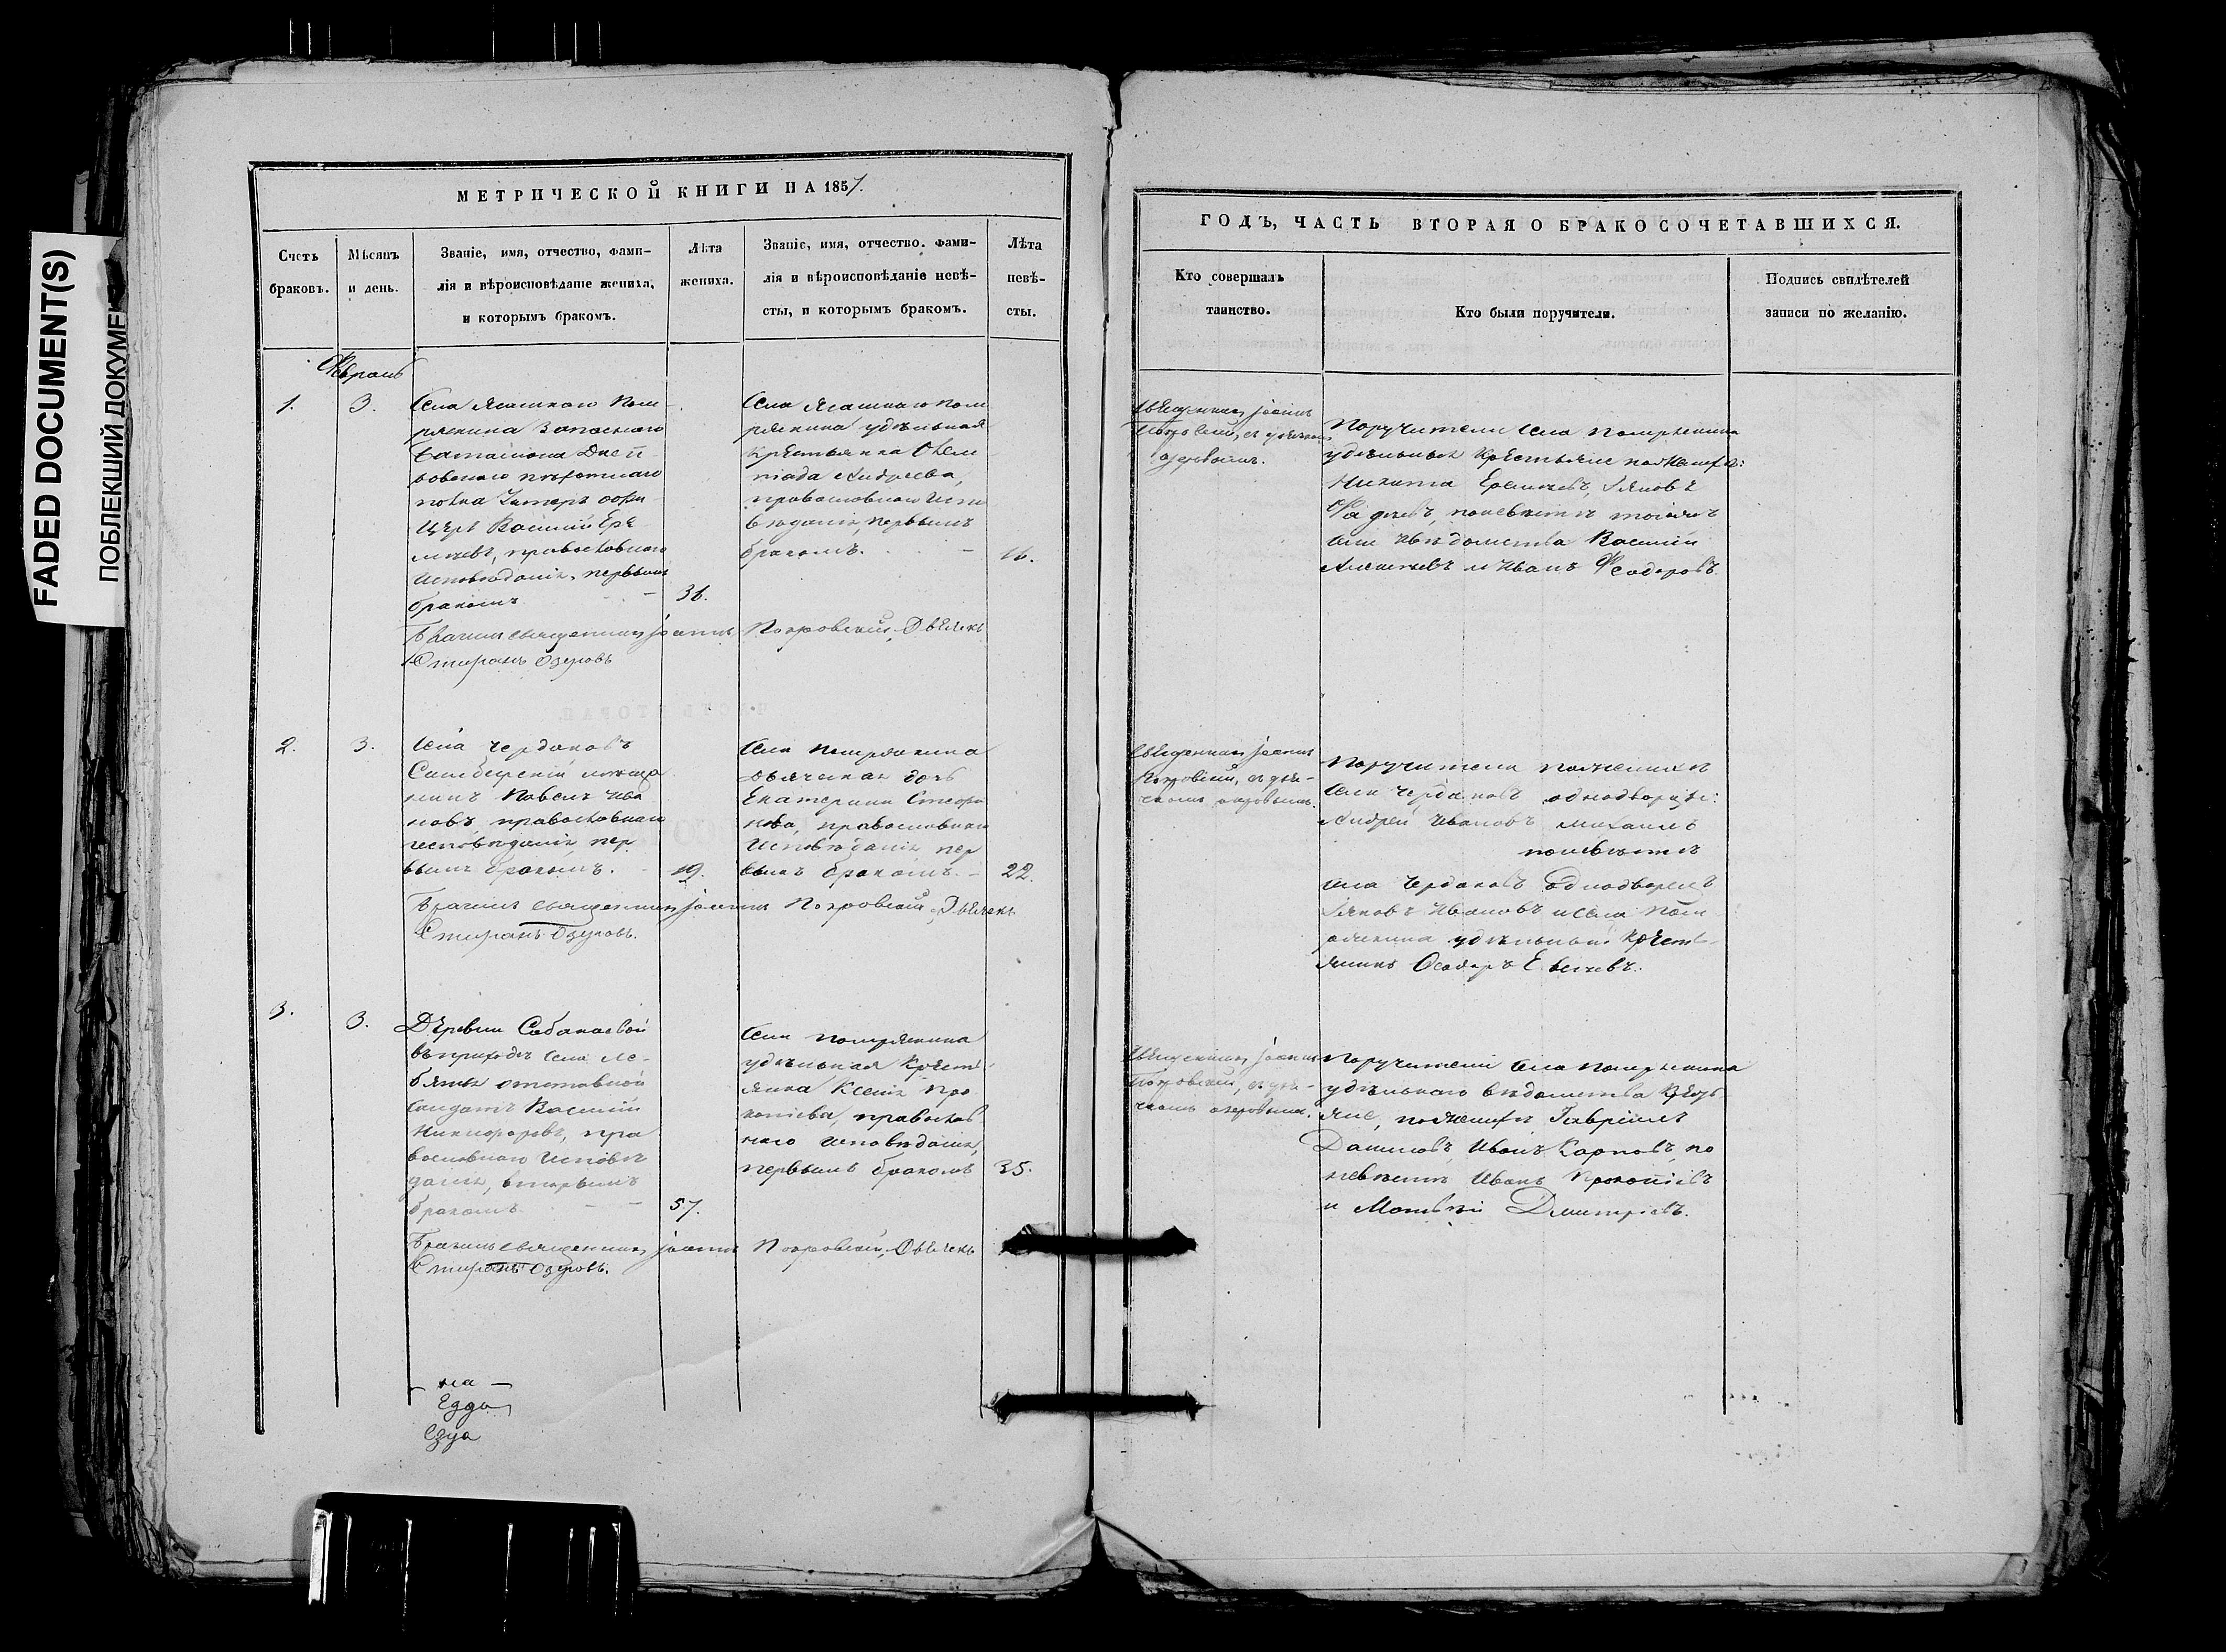 FADED DOCUMENT(S)
ПОБЛЕКШИЙ ДОКУМЕН
МЕТРИЧЕСКОЙ КНИГИ НА 1857.
Счетъ
браковъ.
Мѣсяцъ
и день.
Званіе, имя, отчество, фами-
лія и вѣроисповѣданіе жениха,
и которымъ бракомъ.
Лѣта
жениха.
Званіе, имя, отчество. фами-
лія и вѣроисповѣданіе невѣ-
сты, и которымъ бракомъ.
Лѣта
невѣ-
сты.
Февраль
1.
3.
Села Ясашнаго Пом-
ряскина Запаснаго
баталіона Днѣп
ровскаго пѣхотнаго
полка Унтеръ офи
церъ Василій Ере
мѣевъ, православнаго
исповѣданія, первымъ
бракомъ
36.
Села Ясашнаго Пом
ряскина удѣльная
крестьянка Олим
піада Андреева,
православнаго испо
вѣданія, первымъ
бракомъ.
Бракъ священникъ Іоаннъ Покровскій, Дьячекъ
Стефанъ Озеровъ
2.
3.
Села Чердаковъ
Симбирскій мѣща
нинъ Павелъ Ива
новъ, православнаго
исповѣданія пер
вымъ бракомъ.
19.
Села Помряскина
дьяческая дочь
Екатерина Стефа
нова, православнаго
исповѣданія пер
вымъ бракомъ.
22.
священникъ Іоаннъ Покровскій, Дьячекъ
Стефанъ Озеровъ.
3.
3.
Деревни Сабакаевой
въ приходѣ села Ле-
бяжья отставной
солдатъ Василій
Никифоровъ, пра
вославнаго исповѣ
данія, вторымъ
бракомъ
57.
Села Помряскина
удѣльная крестѣ
янка Ксенія Про
копіева, православ
наго исповѣданія,
первымъ бракомъ
35.
священникъ Іоаннъ Покровскій, Дьячекъ
Стефанъ Озеровъ.
на
ГОДЪ, ЧАСТЬ ВТОРАЯ О БРАКОСОЧЕТАВШИХСЯ.
Кто совершалъ
таинство.
Кто были поручители.
Подпись свидѣтелей
записи по желанію.
Священникъ Іоаннъ
Покровскій, съ дьячкомъ
Озеровымъ.
Поручители села Помряскина
удѣльные крестьяне по женихѣ:
Никита Еремѣевъ, Яковъ
Фадѣевъ, по невѣстѣ того же
вѣдомства Василій
Алексѣевъ и Иванъ Феодоровъ.
Священникъ Іоаннъ
Покровскій, съ дья-
чкомъ Озеровымъ.
Поручители по женихѣ
села Чердаковъ однодворцы:
Андрей Ивановъ, Михаилъ
по невѣстѣ
села Чердаковъ однодворецъ
Яковъ Ивановъ и села Пом
ряскина удѣльный крестѣ-
янинъ Феодоръ
Священникъ Іоаннъ
Покровскій, съ дья-
чкомъ Озеровымъ.
Поручители села Помряскина
удѣльнаго вѣдомства кресть
яне, по женихѣ Гавріилъ
Даниловъ, Иванъ Карповъ, по
невѣстѣ Иванъ Прокопіевъ
и Матвѣй Димитріевъ.